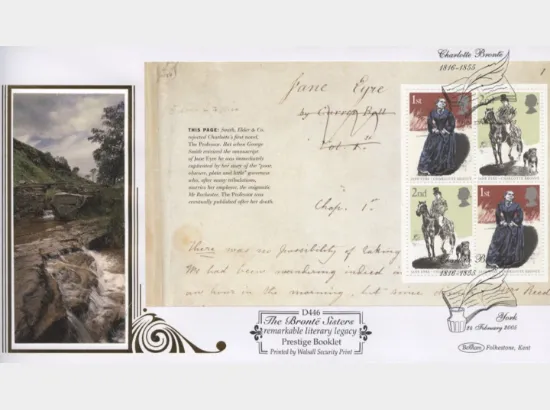 Charlotte Brontë
1816-1855
Jane Eyre
by Currer Bell
Vol. 1st
THIS PAGE: Smith, Elder & Co.
rejected Charlotte's first novel,
The Professor. But when George
Smith received the manuscript
of Jane Eyre he was immediately
captivated by her story of the "poor,
obscure, plain and little" governess
who, after many tribulations,
marries her employer, the enigmatic
Mr Rochester. The Professor was
eventually published after her death.
Chap. 1st
There was no possibility of taking
We had been wandering indeed in
an hour in the morning, but since
Reed
1st
2nd
1st
JANE EYRE · CHARLOTTE BRONTË
JANE EYRE · CHARLOTTE BRONTË
1816-1855
York
24 February 2005
D446
The Brontë Sisters
remarkable literary legacy
Prestige Booklet
Printed by Walsall Security Print
Benham Folkestone, Kent